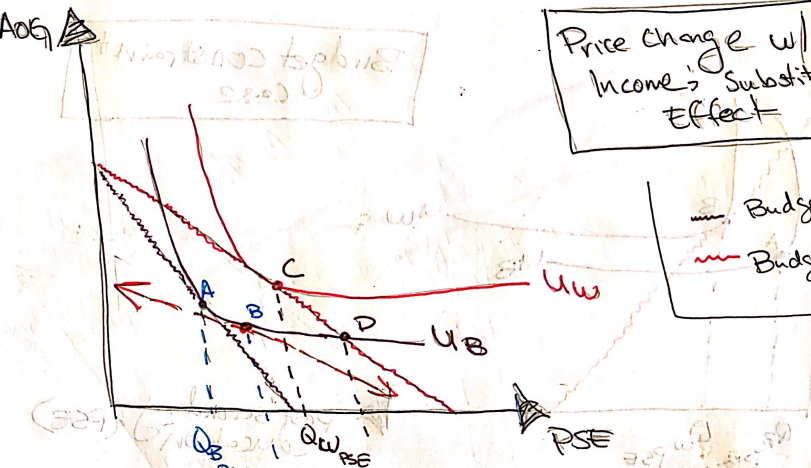 AOG
Price change w/
Income & Substit
Effect
Budg
Budg
C
A
B
D
Uw
UB
QB
QWPSE
PSE